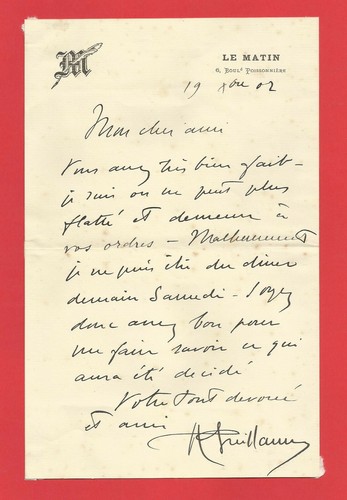 M
LE MATIN
6, Boulᵈ Poissonnière
19 Xbre 02
Mon cher ami
Vous avez très bien fait –
je suis on ne peut plus
flatté et demeure à
vos ordres – Malheureusement
je ne puis être du diner
demain Samedi – Soyez
donc assez bon pour
me faire savoir ce qui
aura été décidé
Votre tout dévoué
et ami